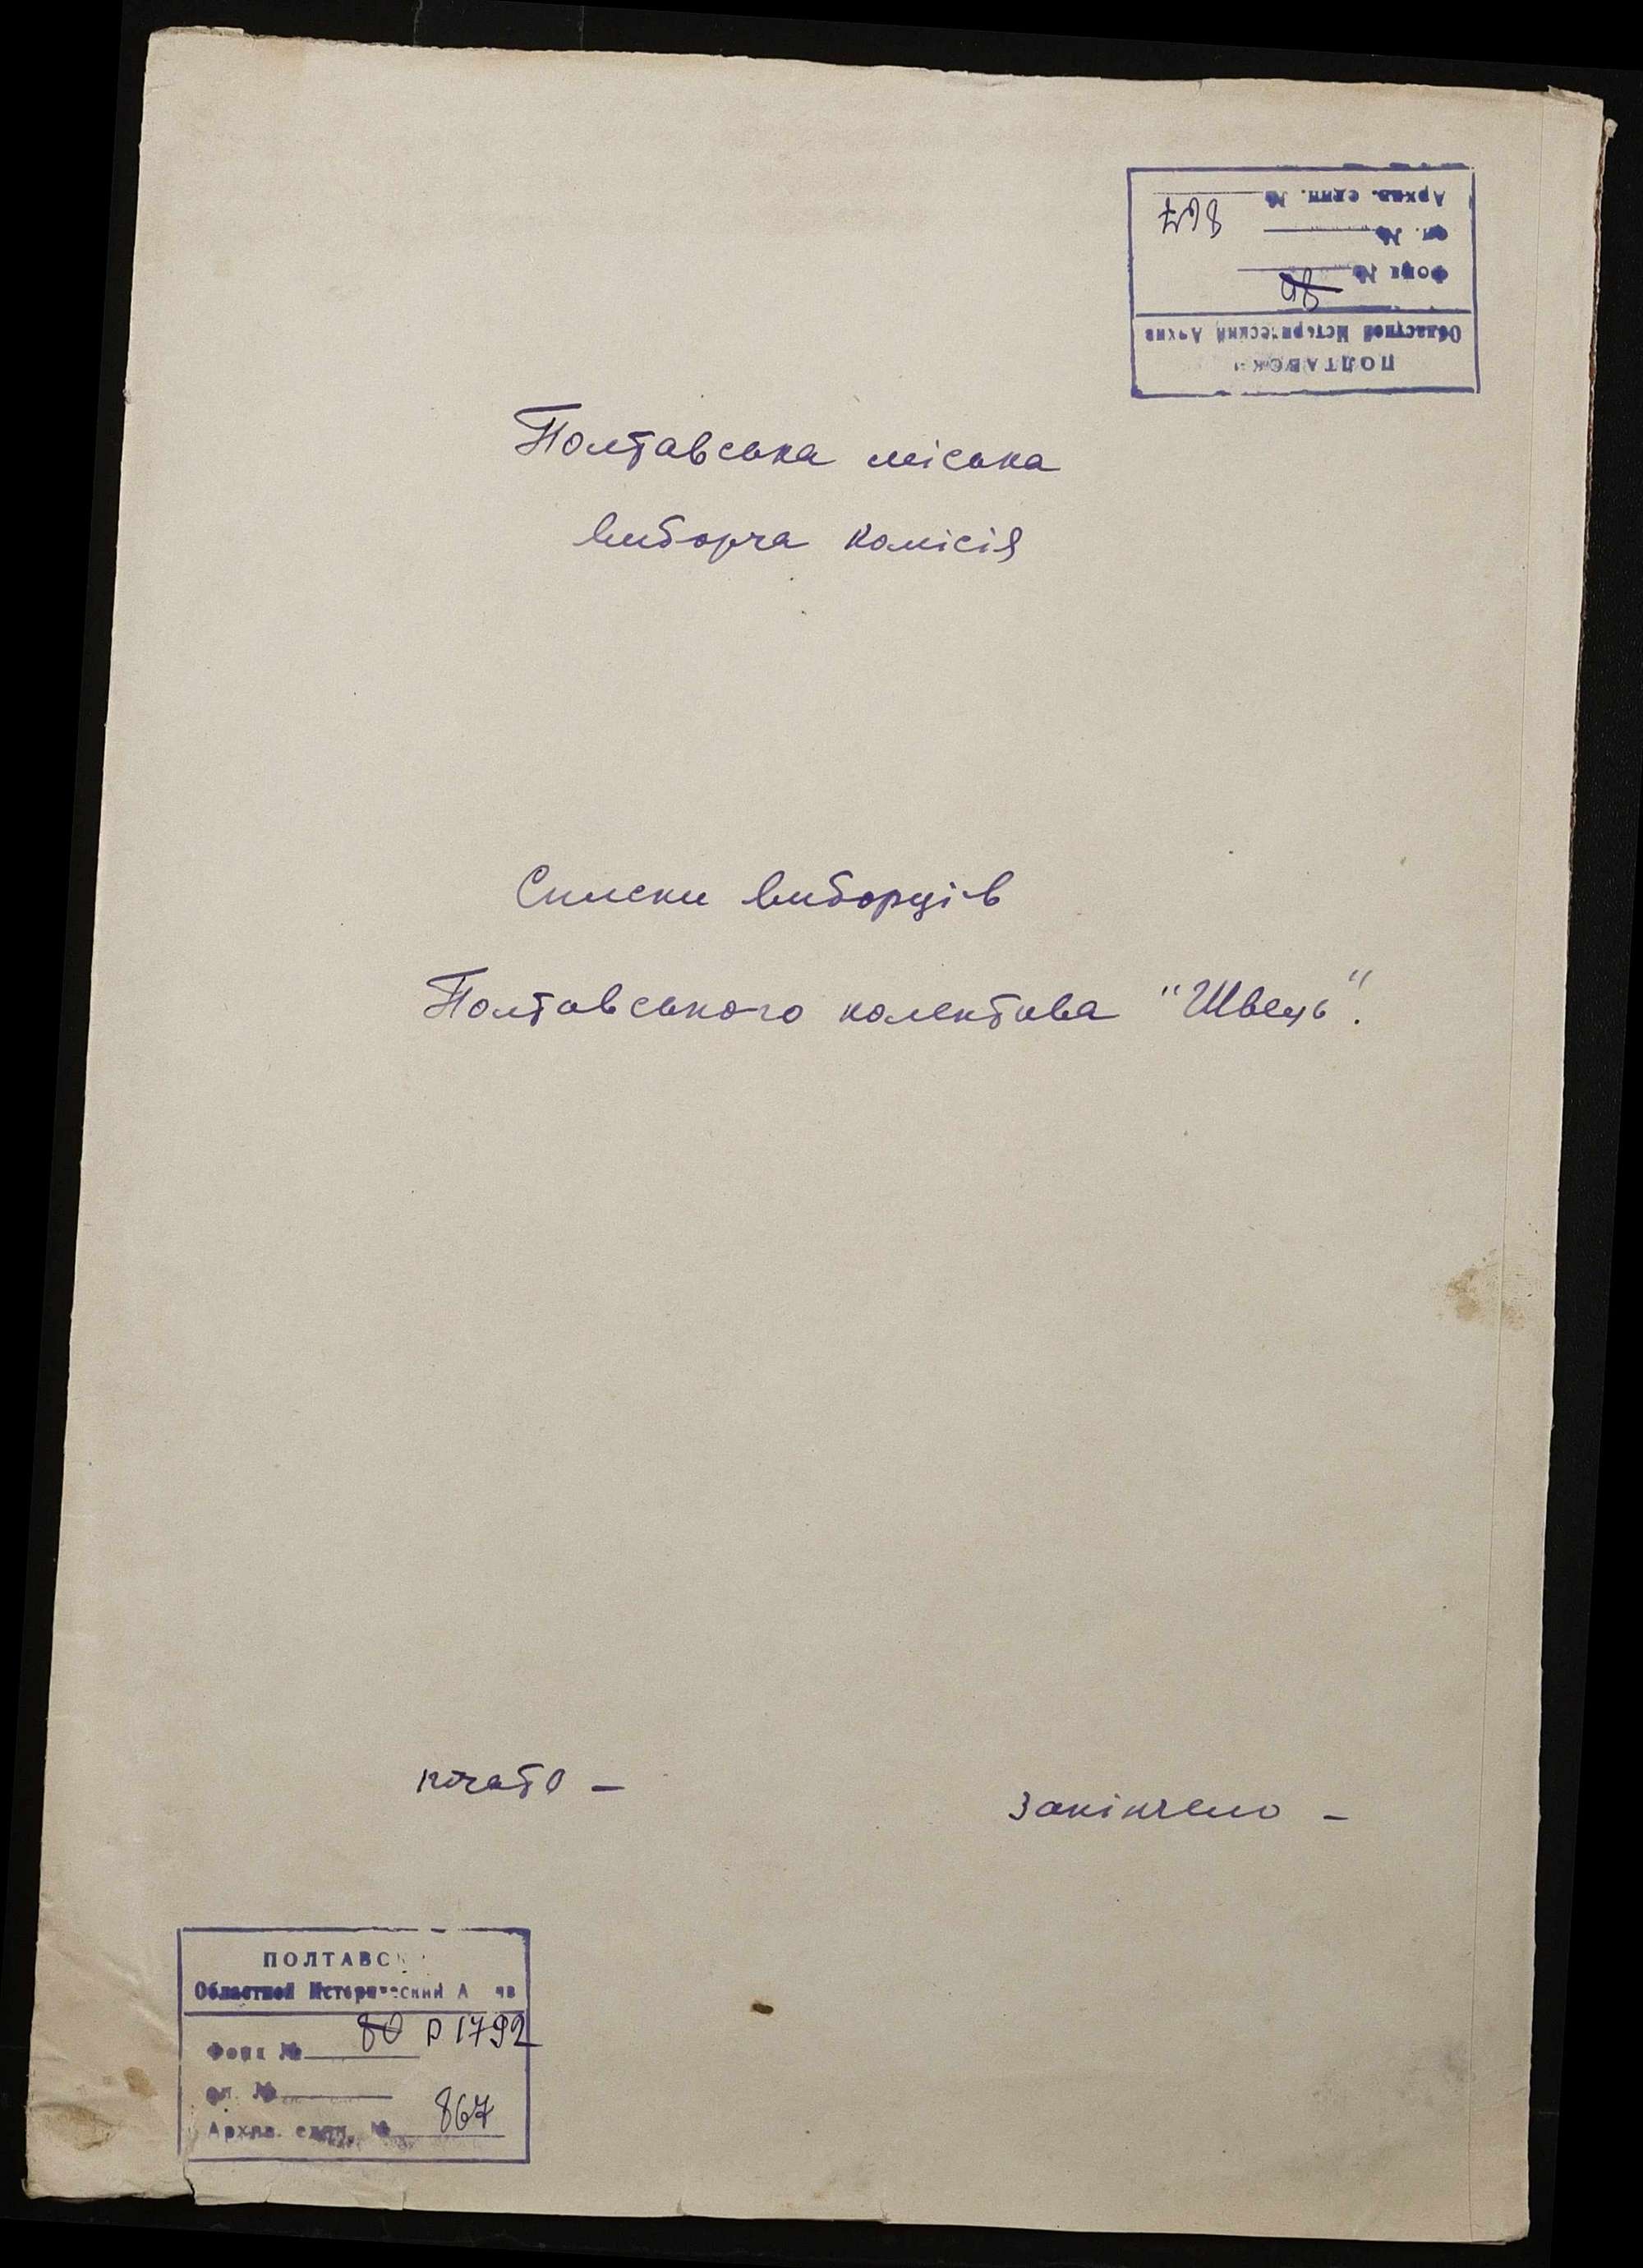 ПОЛТАВСК
Областной Исторический Архив
Фонд № 80
оп. №
Архив. един. № 867
Полтавська міська
виборча комісія
Списки виборців
Полтавського колектива "Швець".
почато –
закінчено –
ПОЛТАВС
Областной Исторический А ив
Фонд № 80 Р 1792
оп. №
Архив. един. № 867